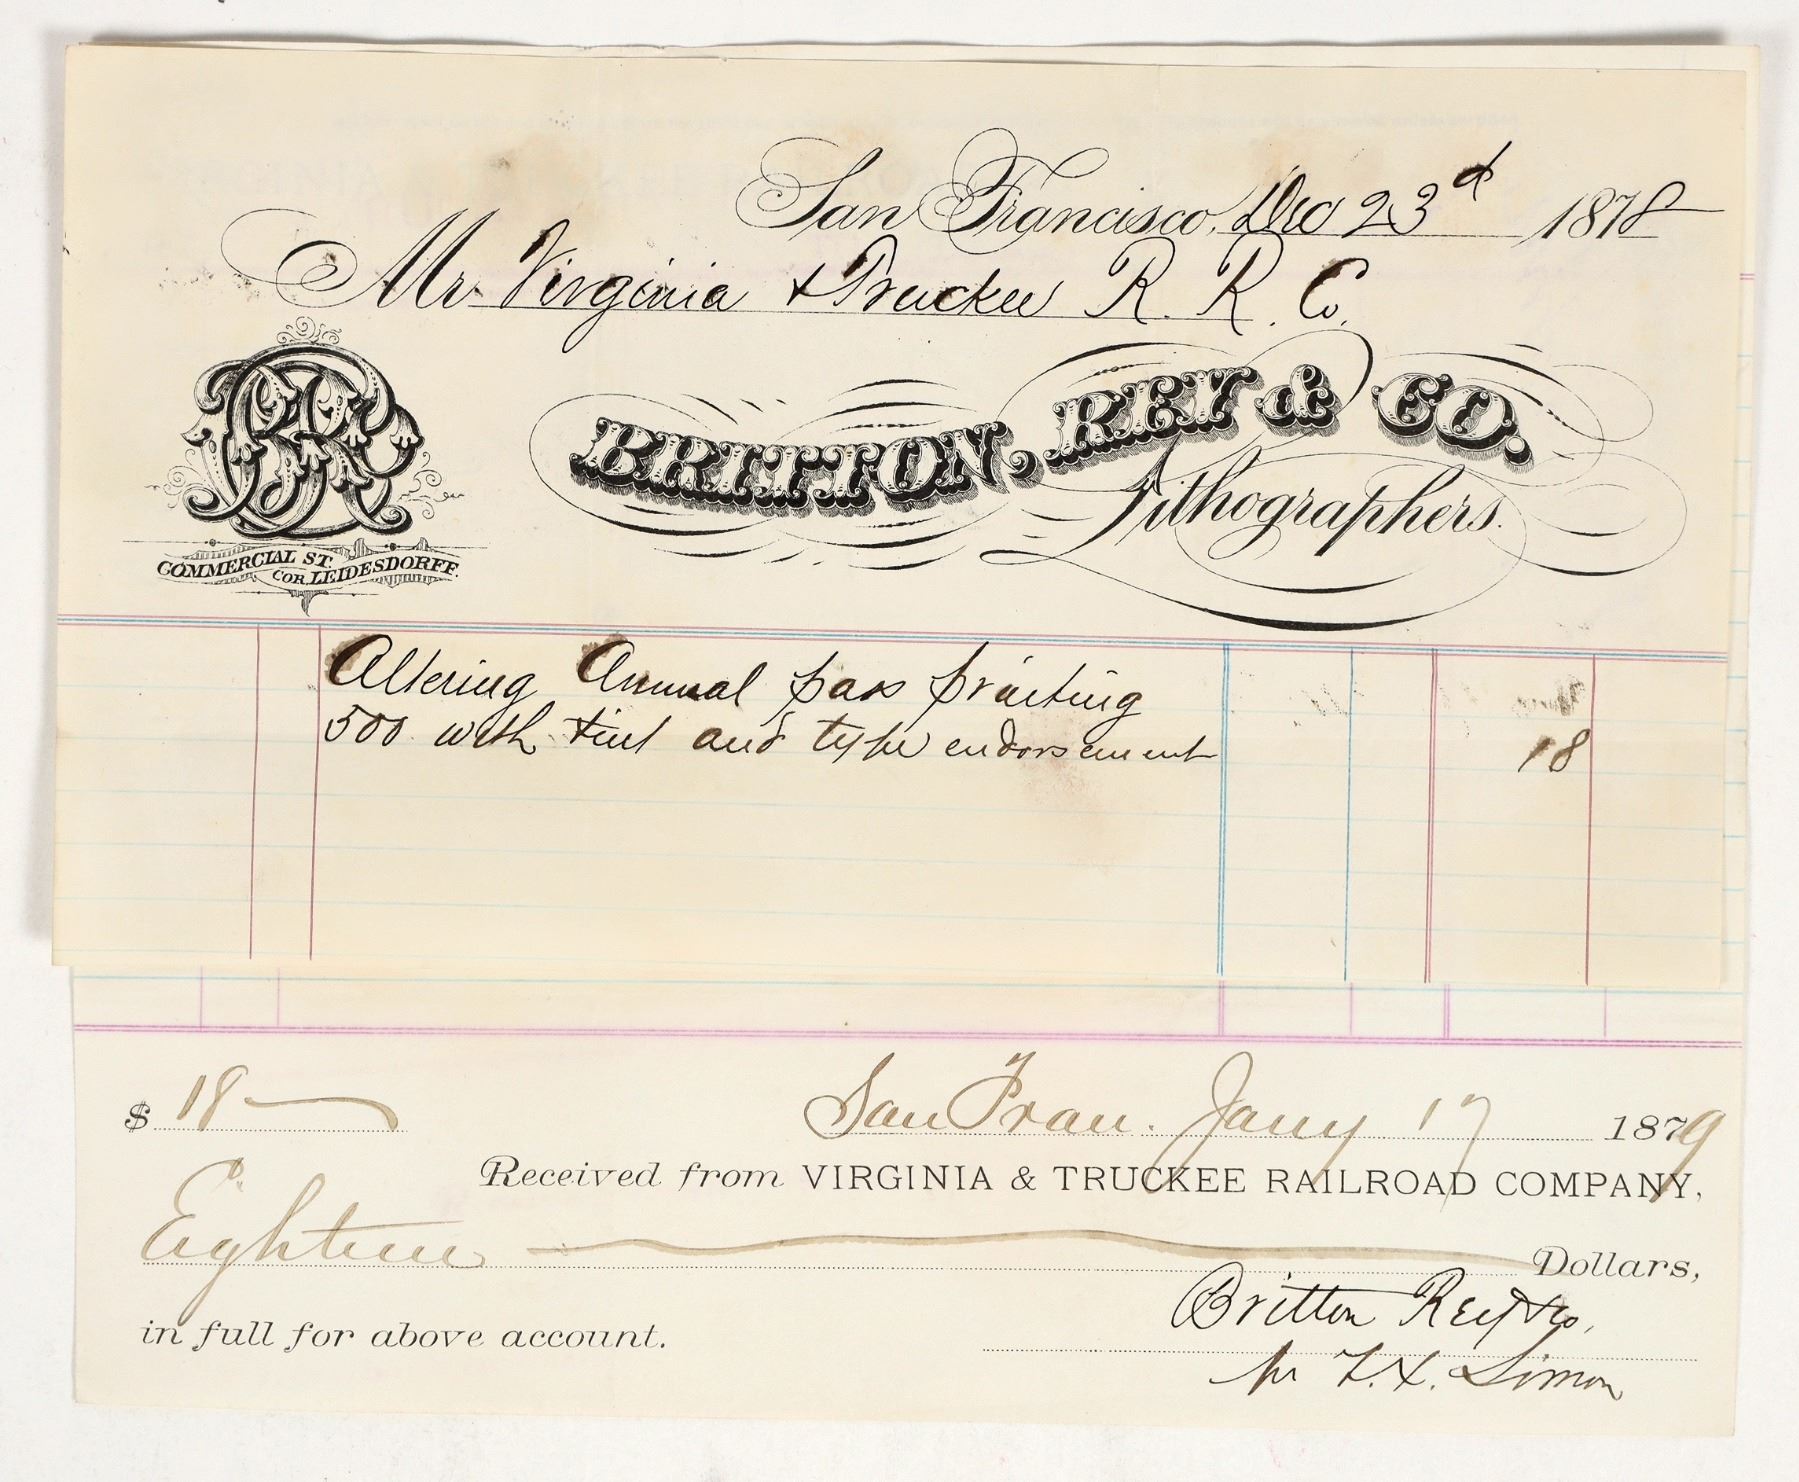 San Francisco, Dec 23d 1878
Mr. Virginia & Truckee R. R. Co.
BR
COMMERCIAL ST.
COR. LEIDESDORFF.
BRITTON, REY & CO.
Lithographers.
Altering Annual pass printing
500 with tint and type endorsement 18
$ 18 San Fran. Jany 17 1879
Received from VIRGINIA & TRUCKEE RAILROAD COMPANY,
Eighteen Dollars,
in full for above account.
Britton Rey & Co.
pr F. X. Simon